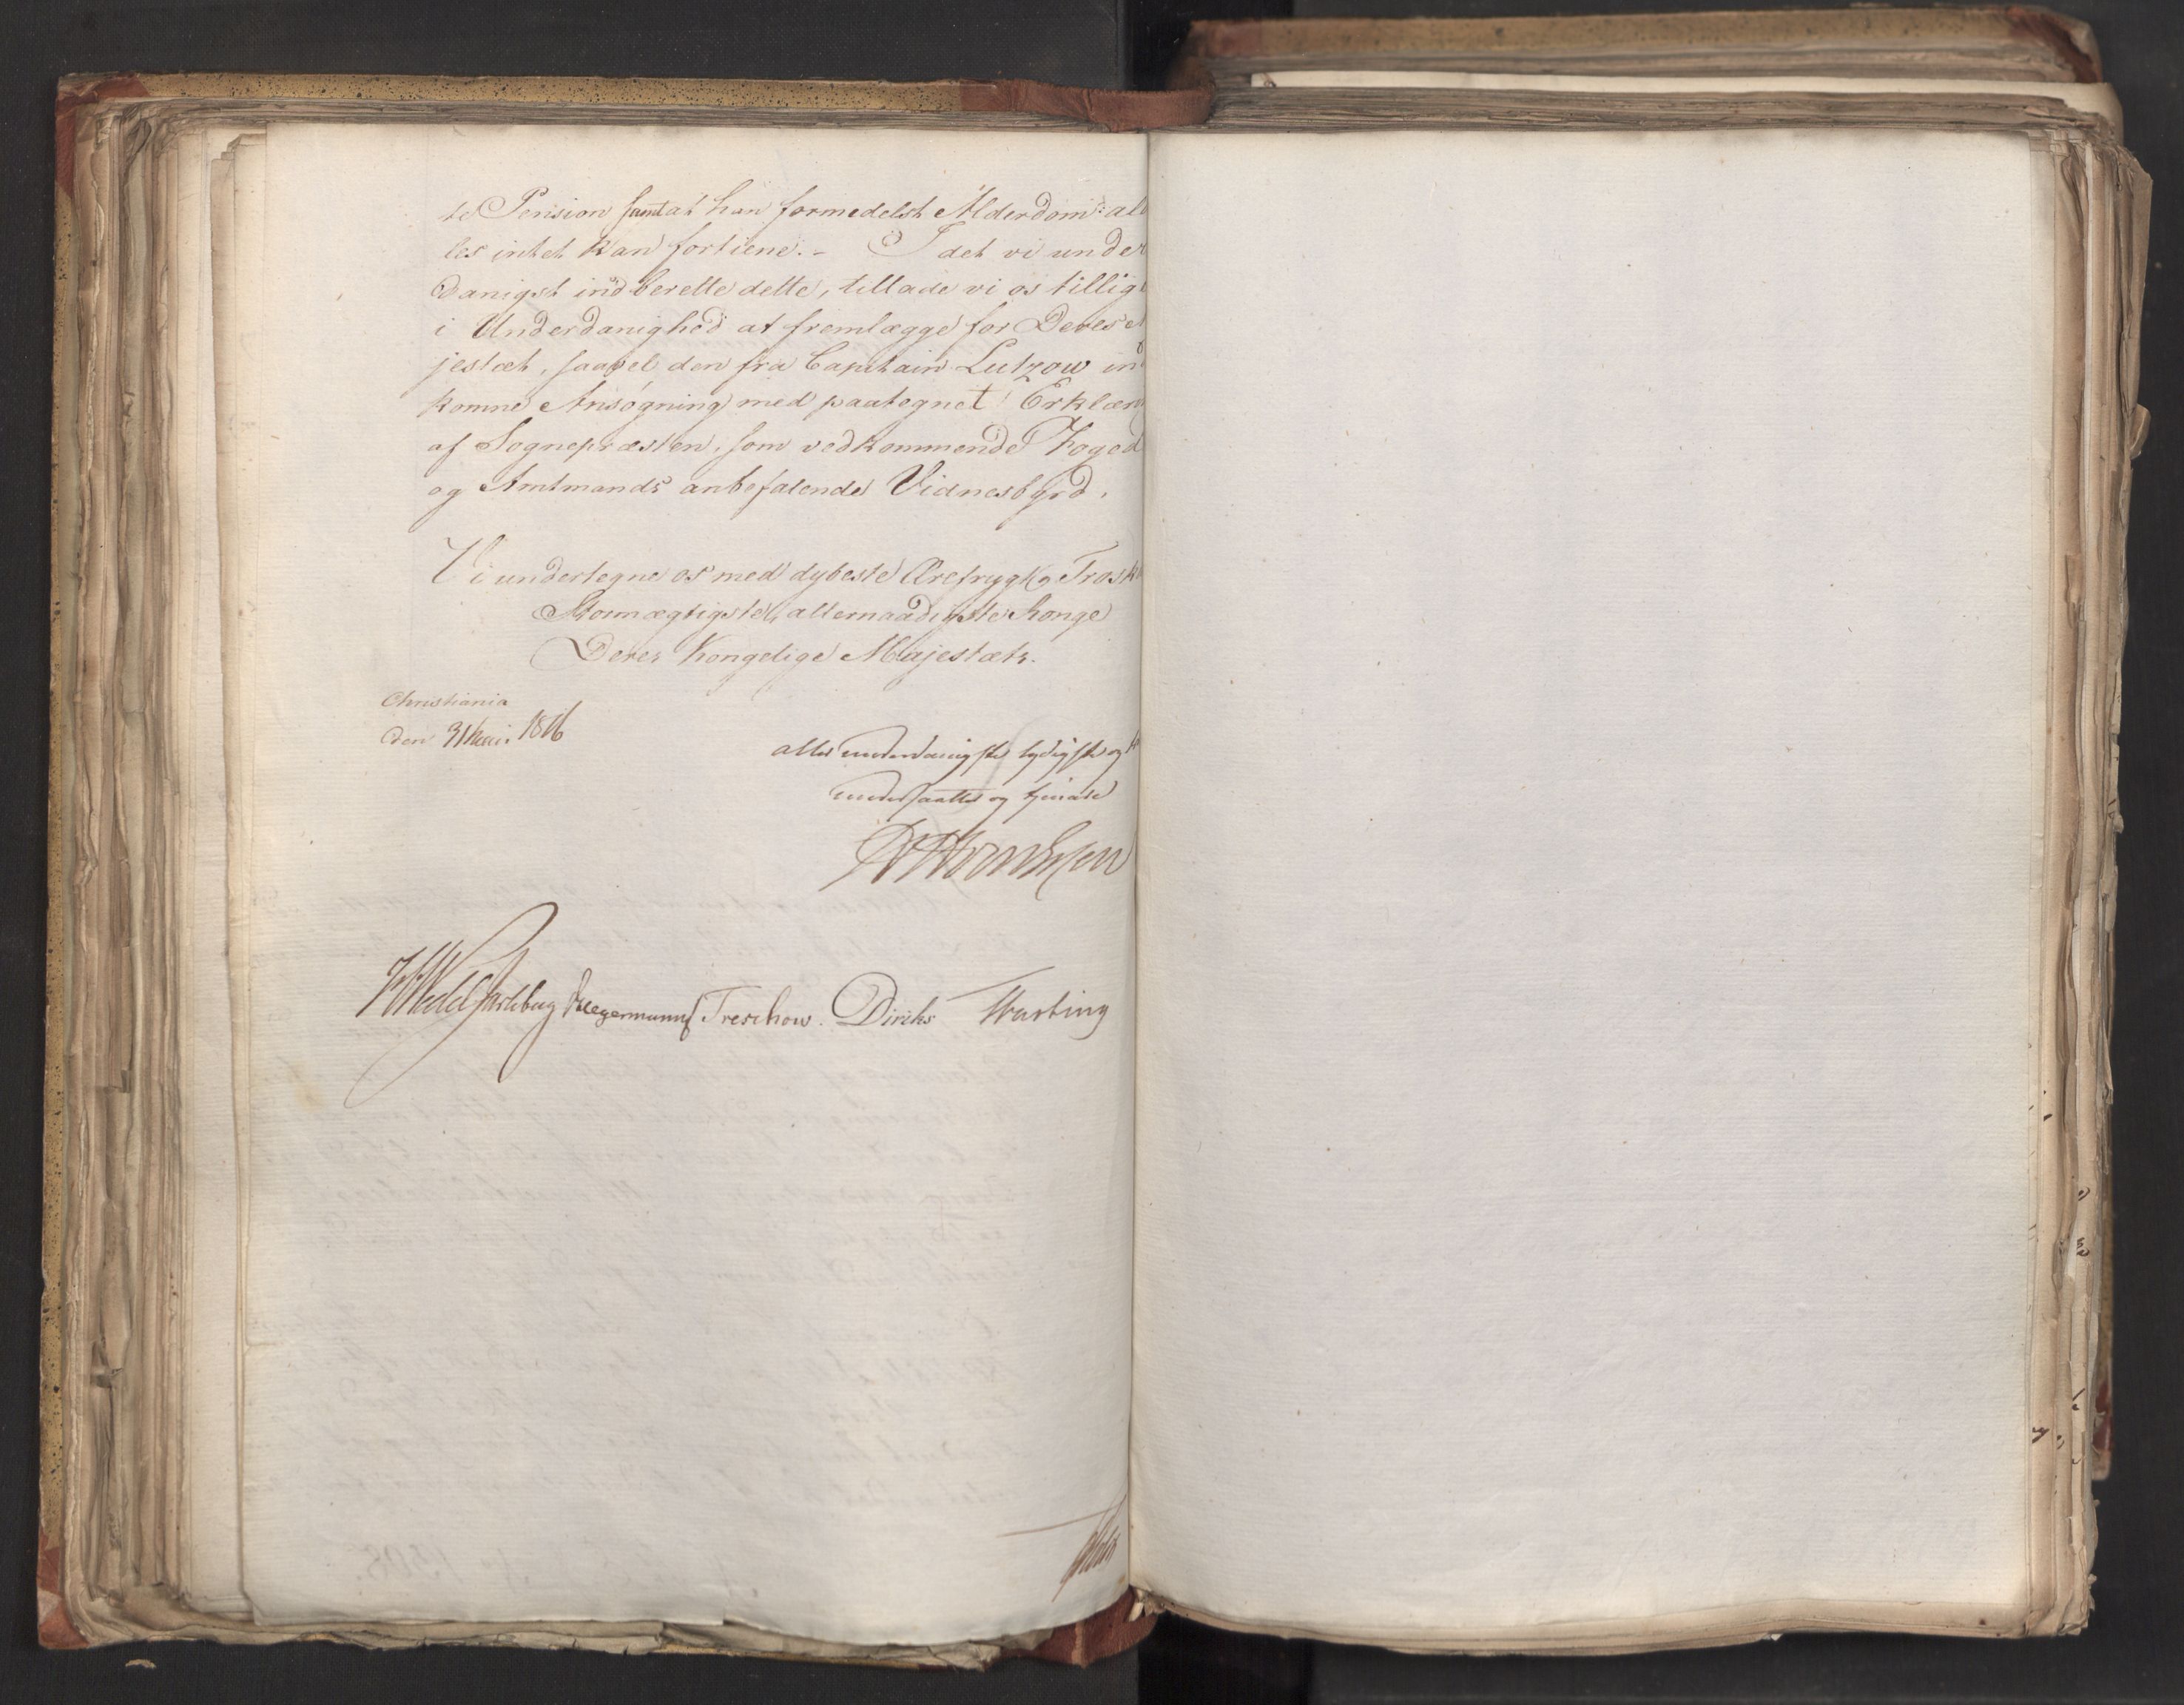 te Pension samt at han formedelst Alderdom al
les intet kan fortiene. – I det vi under
danigst indberette dette, tillade vi os tillig
i Underdanighed at fremlægge for Deres
jestæt, saavel den fra Capitain Lutzow ind
komne Ansøgning med paategnet Erklær
af Sognepræsten, som vedkommende Foged
og Amtmands anbefalende Vidnesbyrd.
Vi undertegne os med dybeste Ærefrygt og Trosk
Stormægtigste, allernaadigste Konge
Deres Kongelige Majestæts.
Christiania
den 31 Mai 1816
allerunderdanigste lydigste og
undersaatter og tjenere
M Sommerhjelm
HWedel Jarlsberg Hegermann Treschow. Diriks